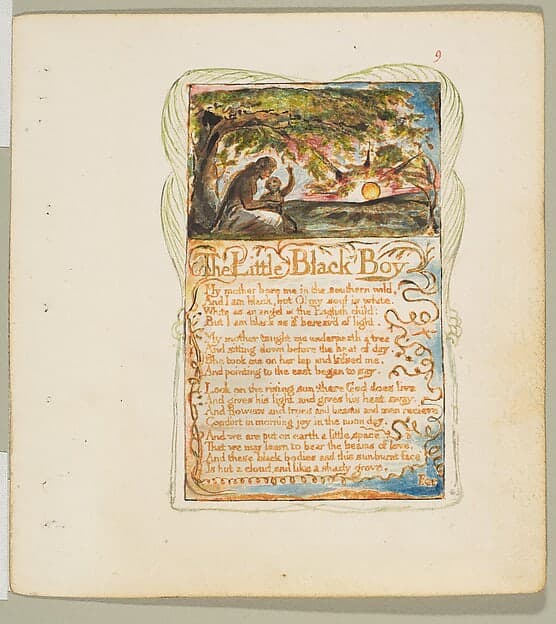 9
The Little Black Boy
My mother bore me in the southern wild,
And I am black, but O! my soul is white.
White as an angel is the English child:
But I am black as if bereav'd of light.
My mother taught me underneath a tree
And sitting down before the heat of day
She took me on her lap and kissed me.
And pointing to the east began to say.
Look on the rising sun: there God does live
And gives his light, and gives his heat away.
And flowers and trees and beasts and men recieve
Comfort in morning joy in the noon day.
And we are put on earth a little space
That we may learn to bear the beams of love,
And these black bodies and this sunburnt face
Is but a cloud, and like a shady grove.
For